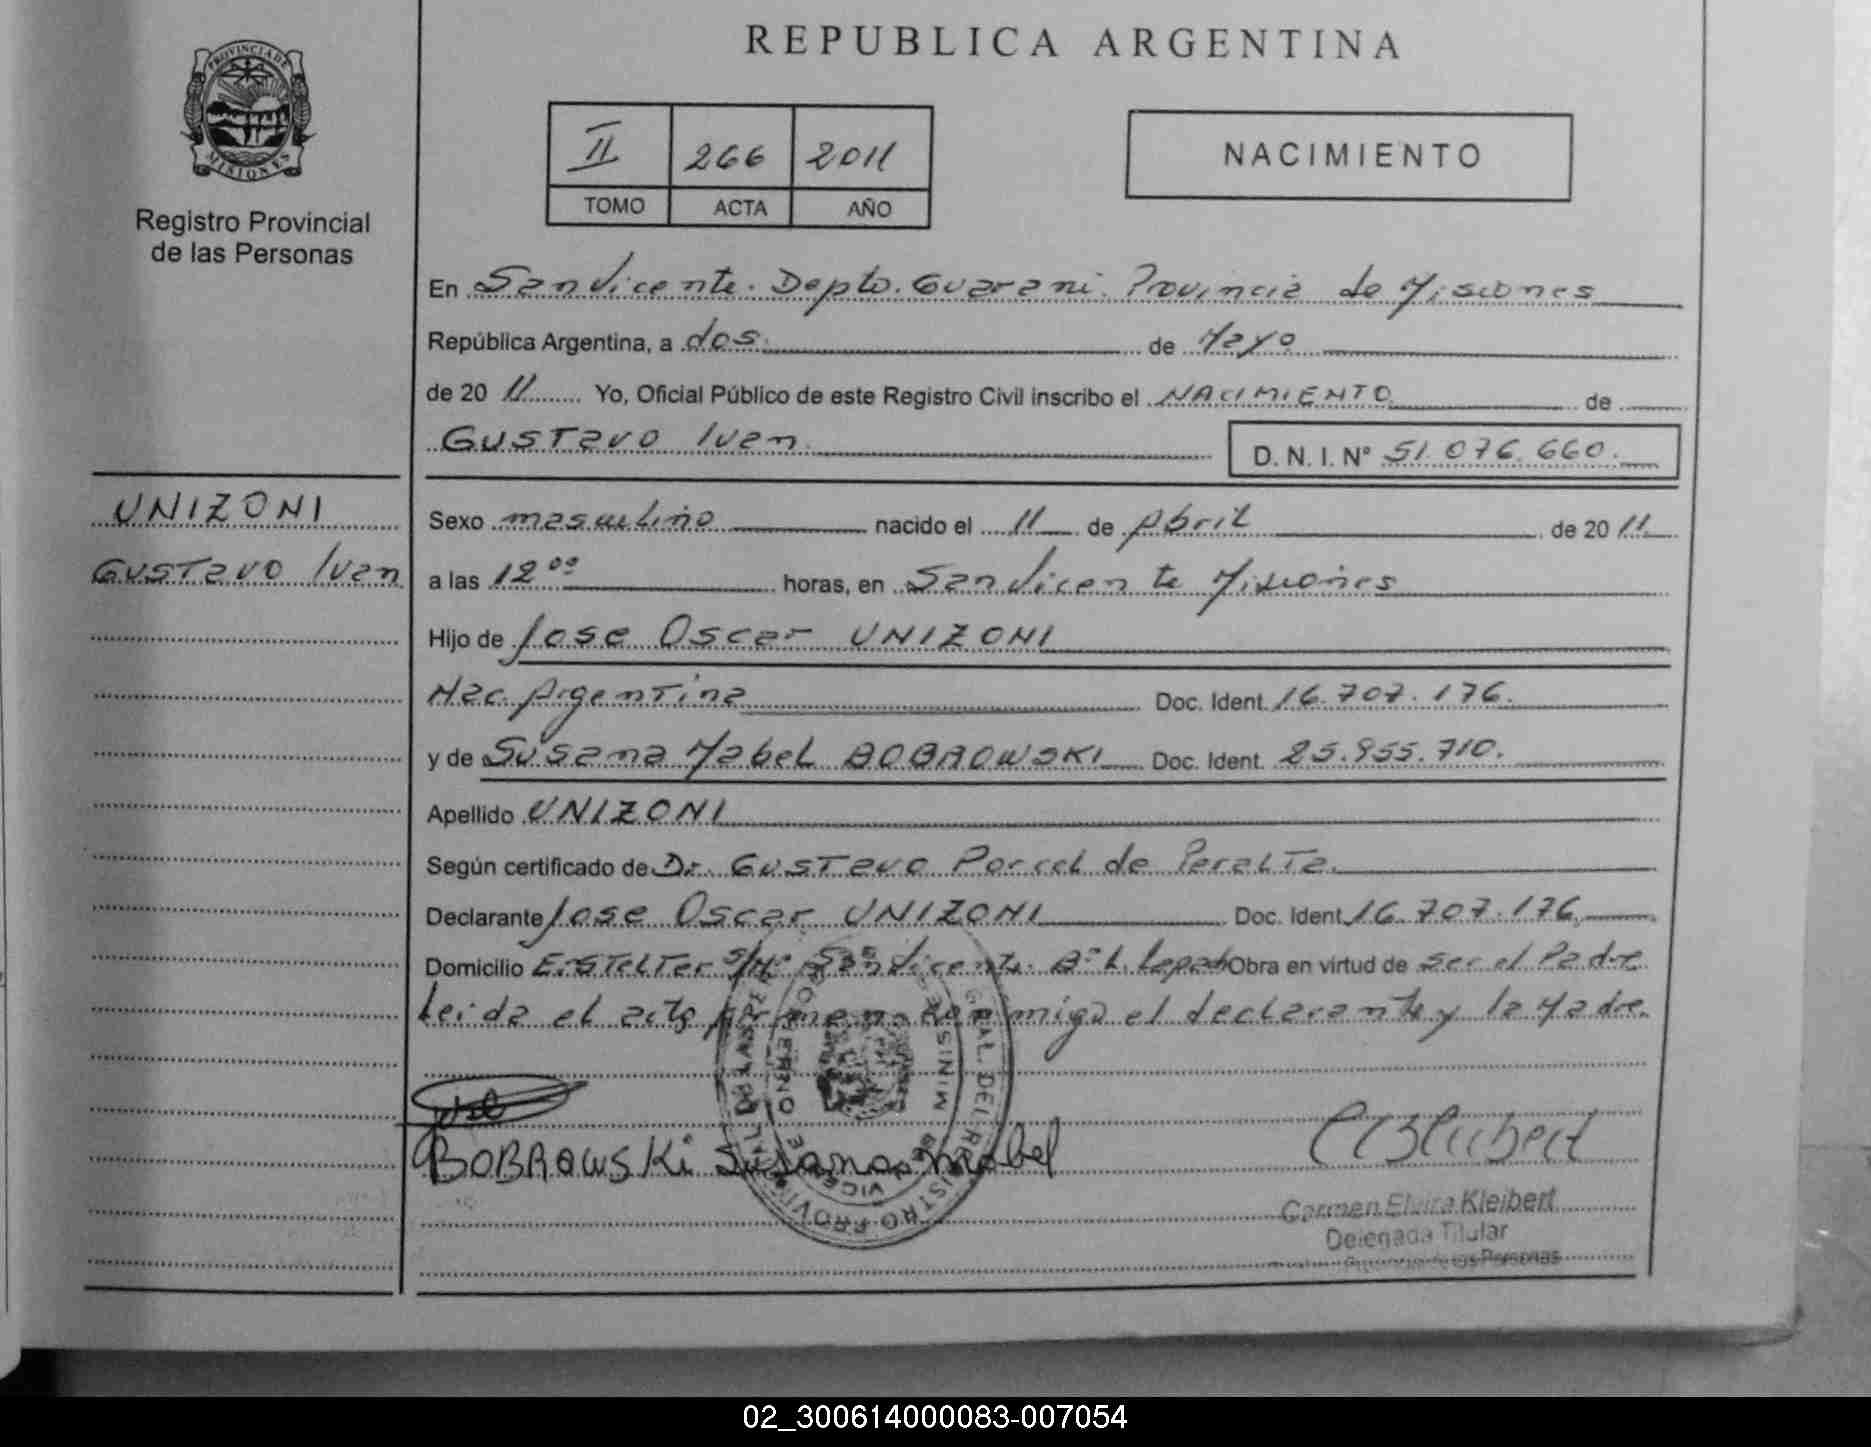 PROVINCIA DE
MISIONES
Registro Provincial
de las Personas
REPUBLICA ARGENTINA
II 266 2011
TOMO ACTA AÑO
NACIMIENTO
En San Vicente. Depto. Guarani. Provincia de Misiones
República Argentina, a dos de Mayo
de 2011 Yo, Oficial Público de este Registro Civil inscribo el NACIMIENTO de
Gustavo Ivan D. N. I. N° 51.076.660.
UNIZONI
Gustavo Ivan
Sexo masculino nacido el 11 de Abril de 2011
a las 12 00 horas, en San Vicente Misiones
Hijo de Jose Oscar UNIZONI
Nac. Argentina Doc. Ident. 16.707.176.
y de Susana Mabel BOBROWSKI Doc. Ident. 25.955.710.
Apellido UNIZONI
Según certificado de Dr. Gustavo Porcel de Peralta.
Declarante Jose Oscar UNIZONI Doc. Ident. 16.707.176
Domicilio S/Nº San Vicente. Obra en virtud de ser el Padre
Leida el acta firman conmigo el declarante y la Madre.
BOBROWSKi Susana Mabel
Carmen Elvira Kleibert
Delegada Titular
de las Personas
02_300614000083-007054